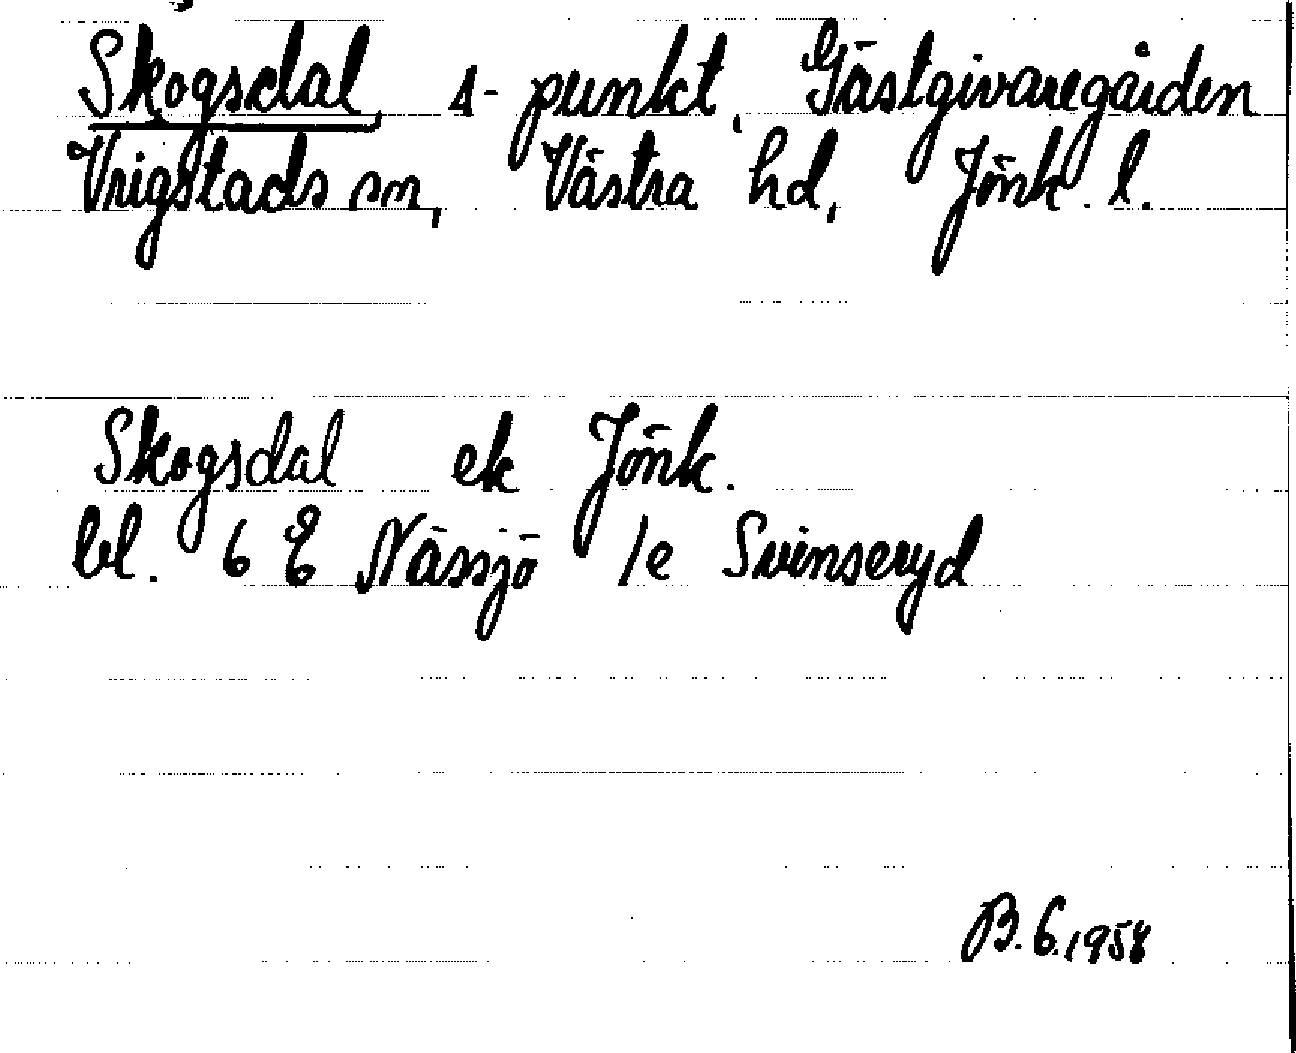 Skogsdal, s-punkt, Gästgivaregården
Vrigstads sn, Västra hd, Jönk. l.
Skogsdal ek Jönk.
bl. 6 E Nässjö 1e Svinseryd
B. 6. 1958